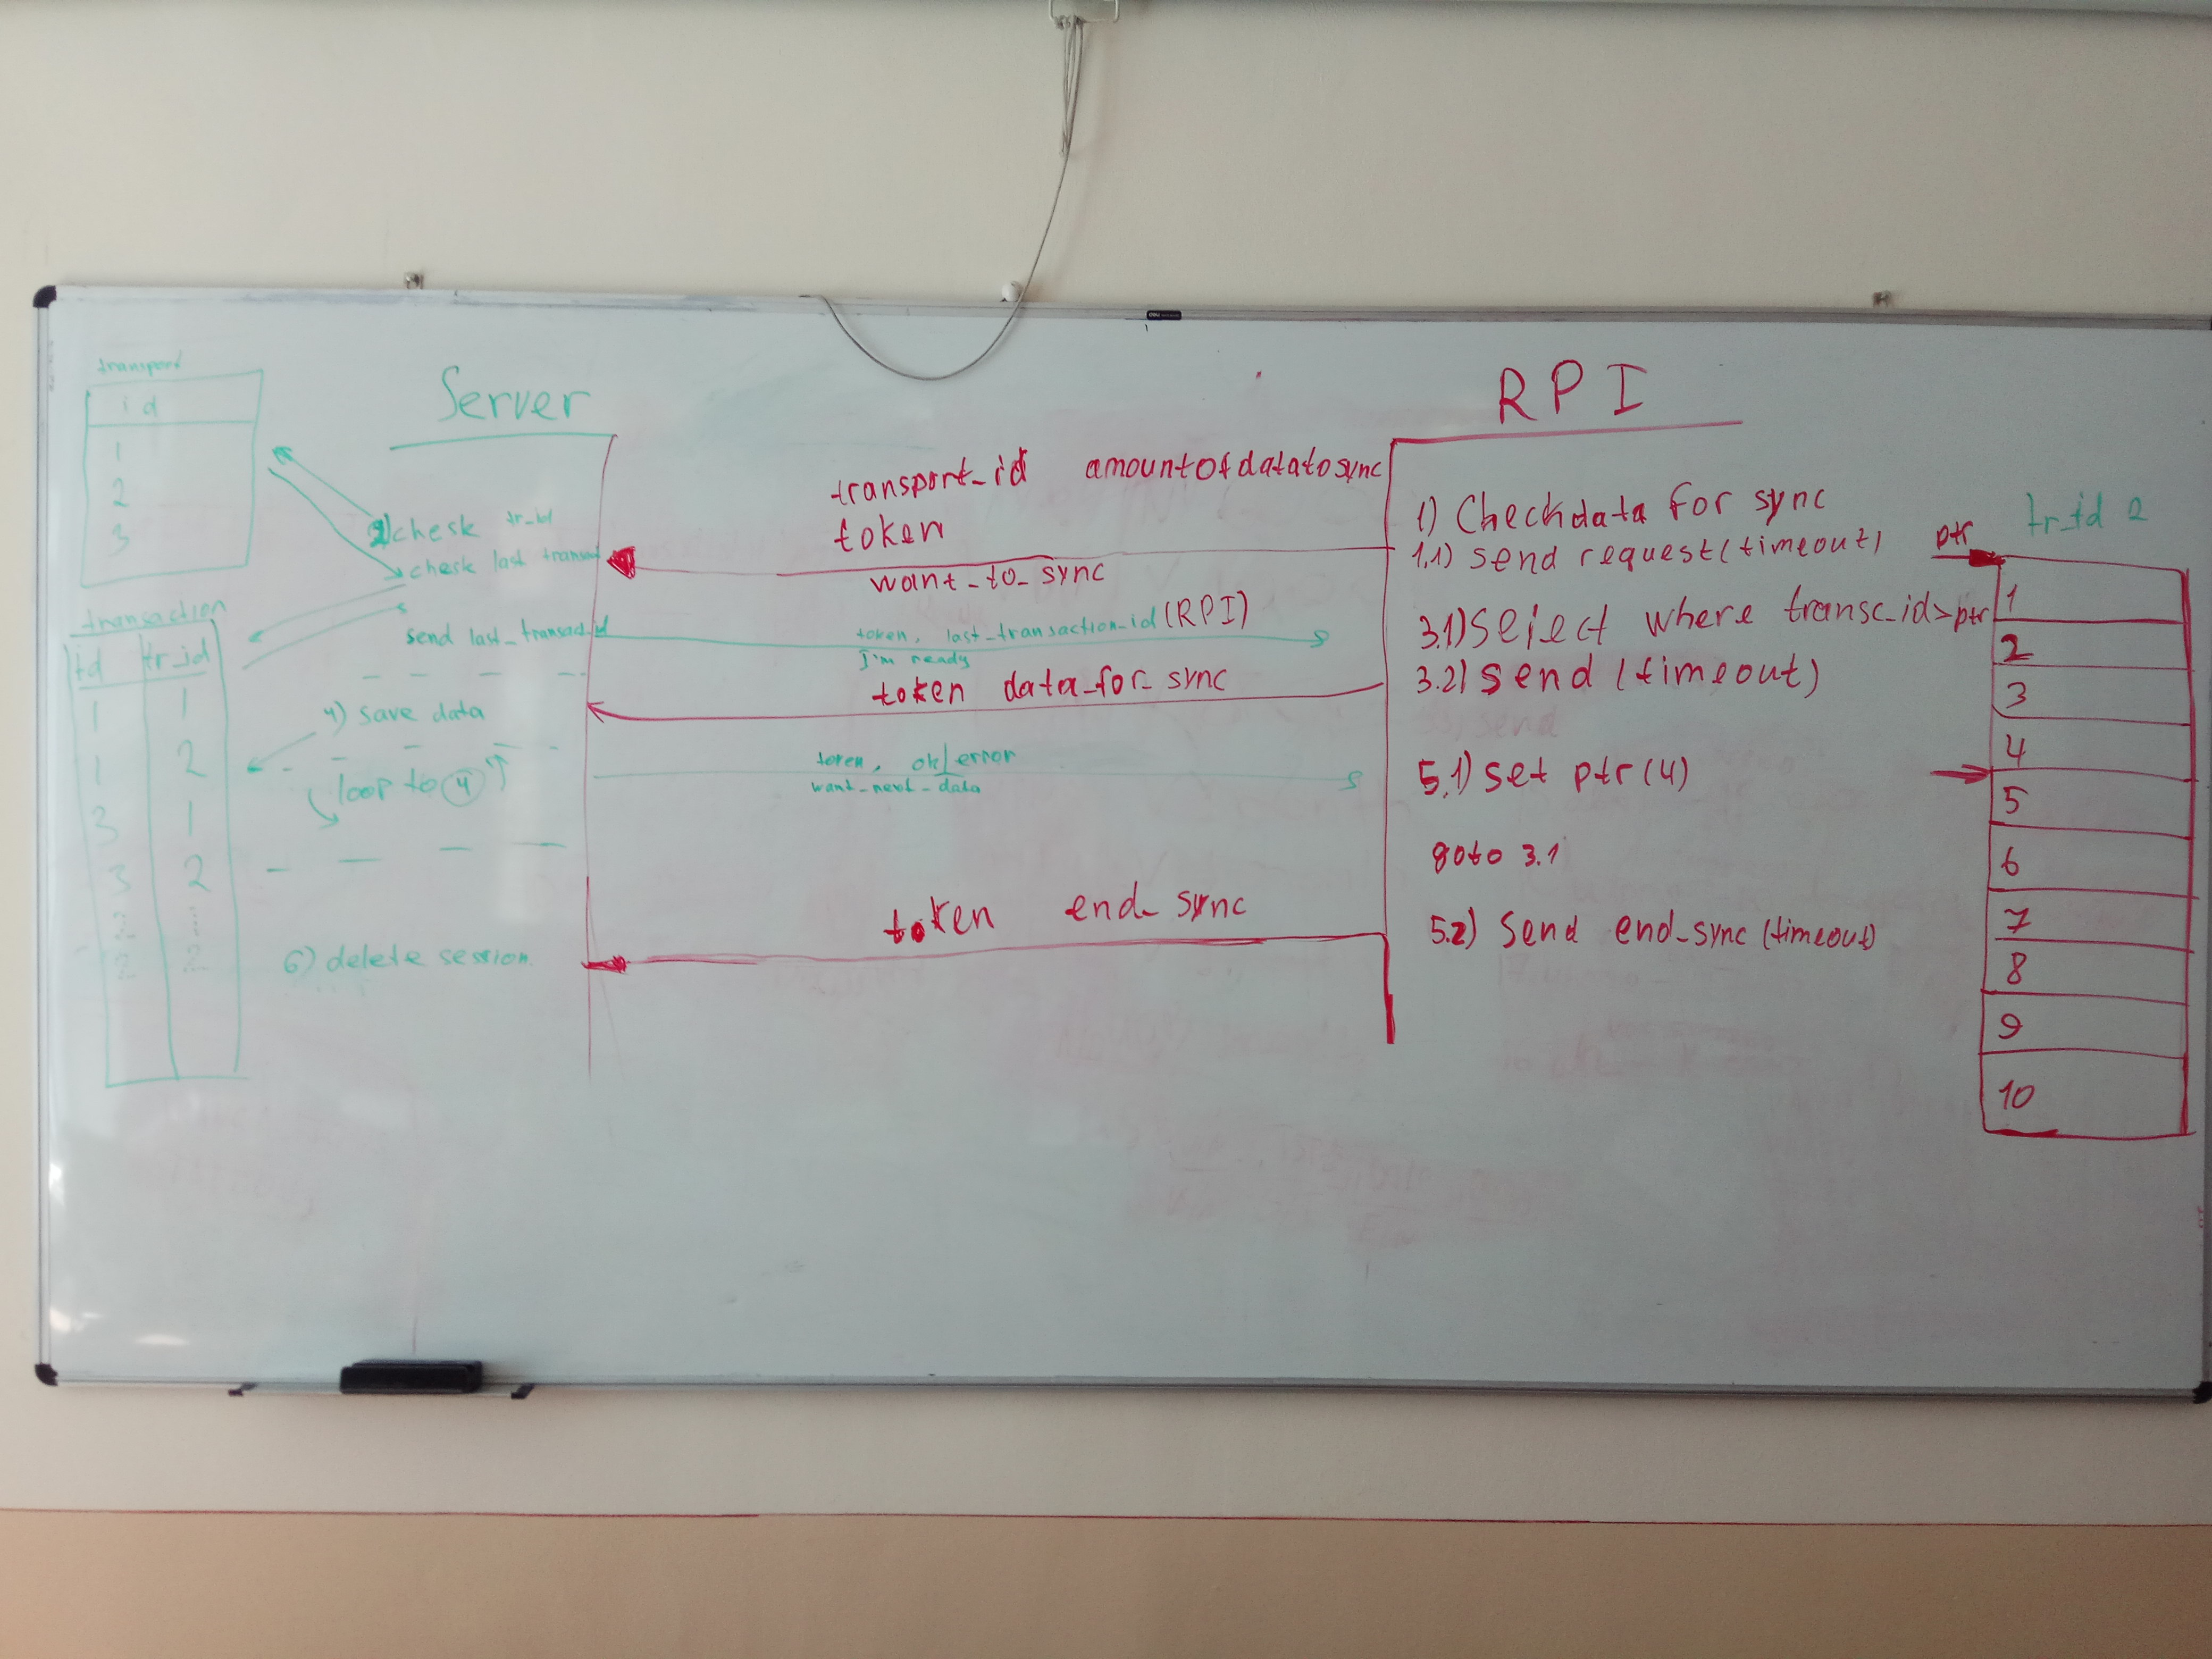 transport
id
1
2
3
Server
2) chesk tr_id
check last transact
send last_transact_id
transaction
id tr_id
1 1
1 2
3 1
3 2
4) save data
loop to 4
6) delete session.
transport_id amountofdatatosync
token
want_to_sync
token, last_transaction_id (RPI)
I'm ready
token data_for_sync
token, ok/error
want_next_data
token end_sync
RPI
1) Checkdata for sync
1.1) send request(timeout)
3.1) select where transc_id>ptr
3.2) send (timeout)
5.1) set ptr (4)
goto 3.1
5.2) Send end_sync (timeout)
tr_id 2
ptr
1
2
3
4
5
6
7
8
9
10